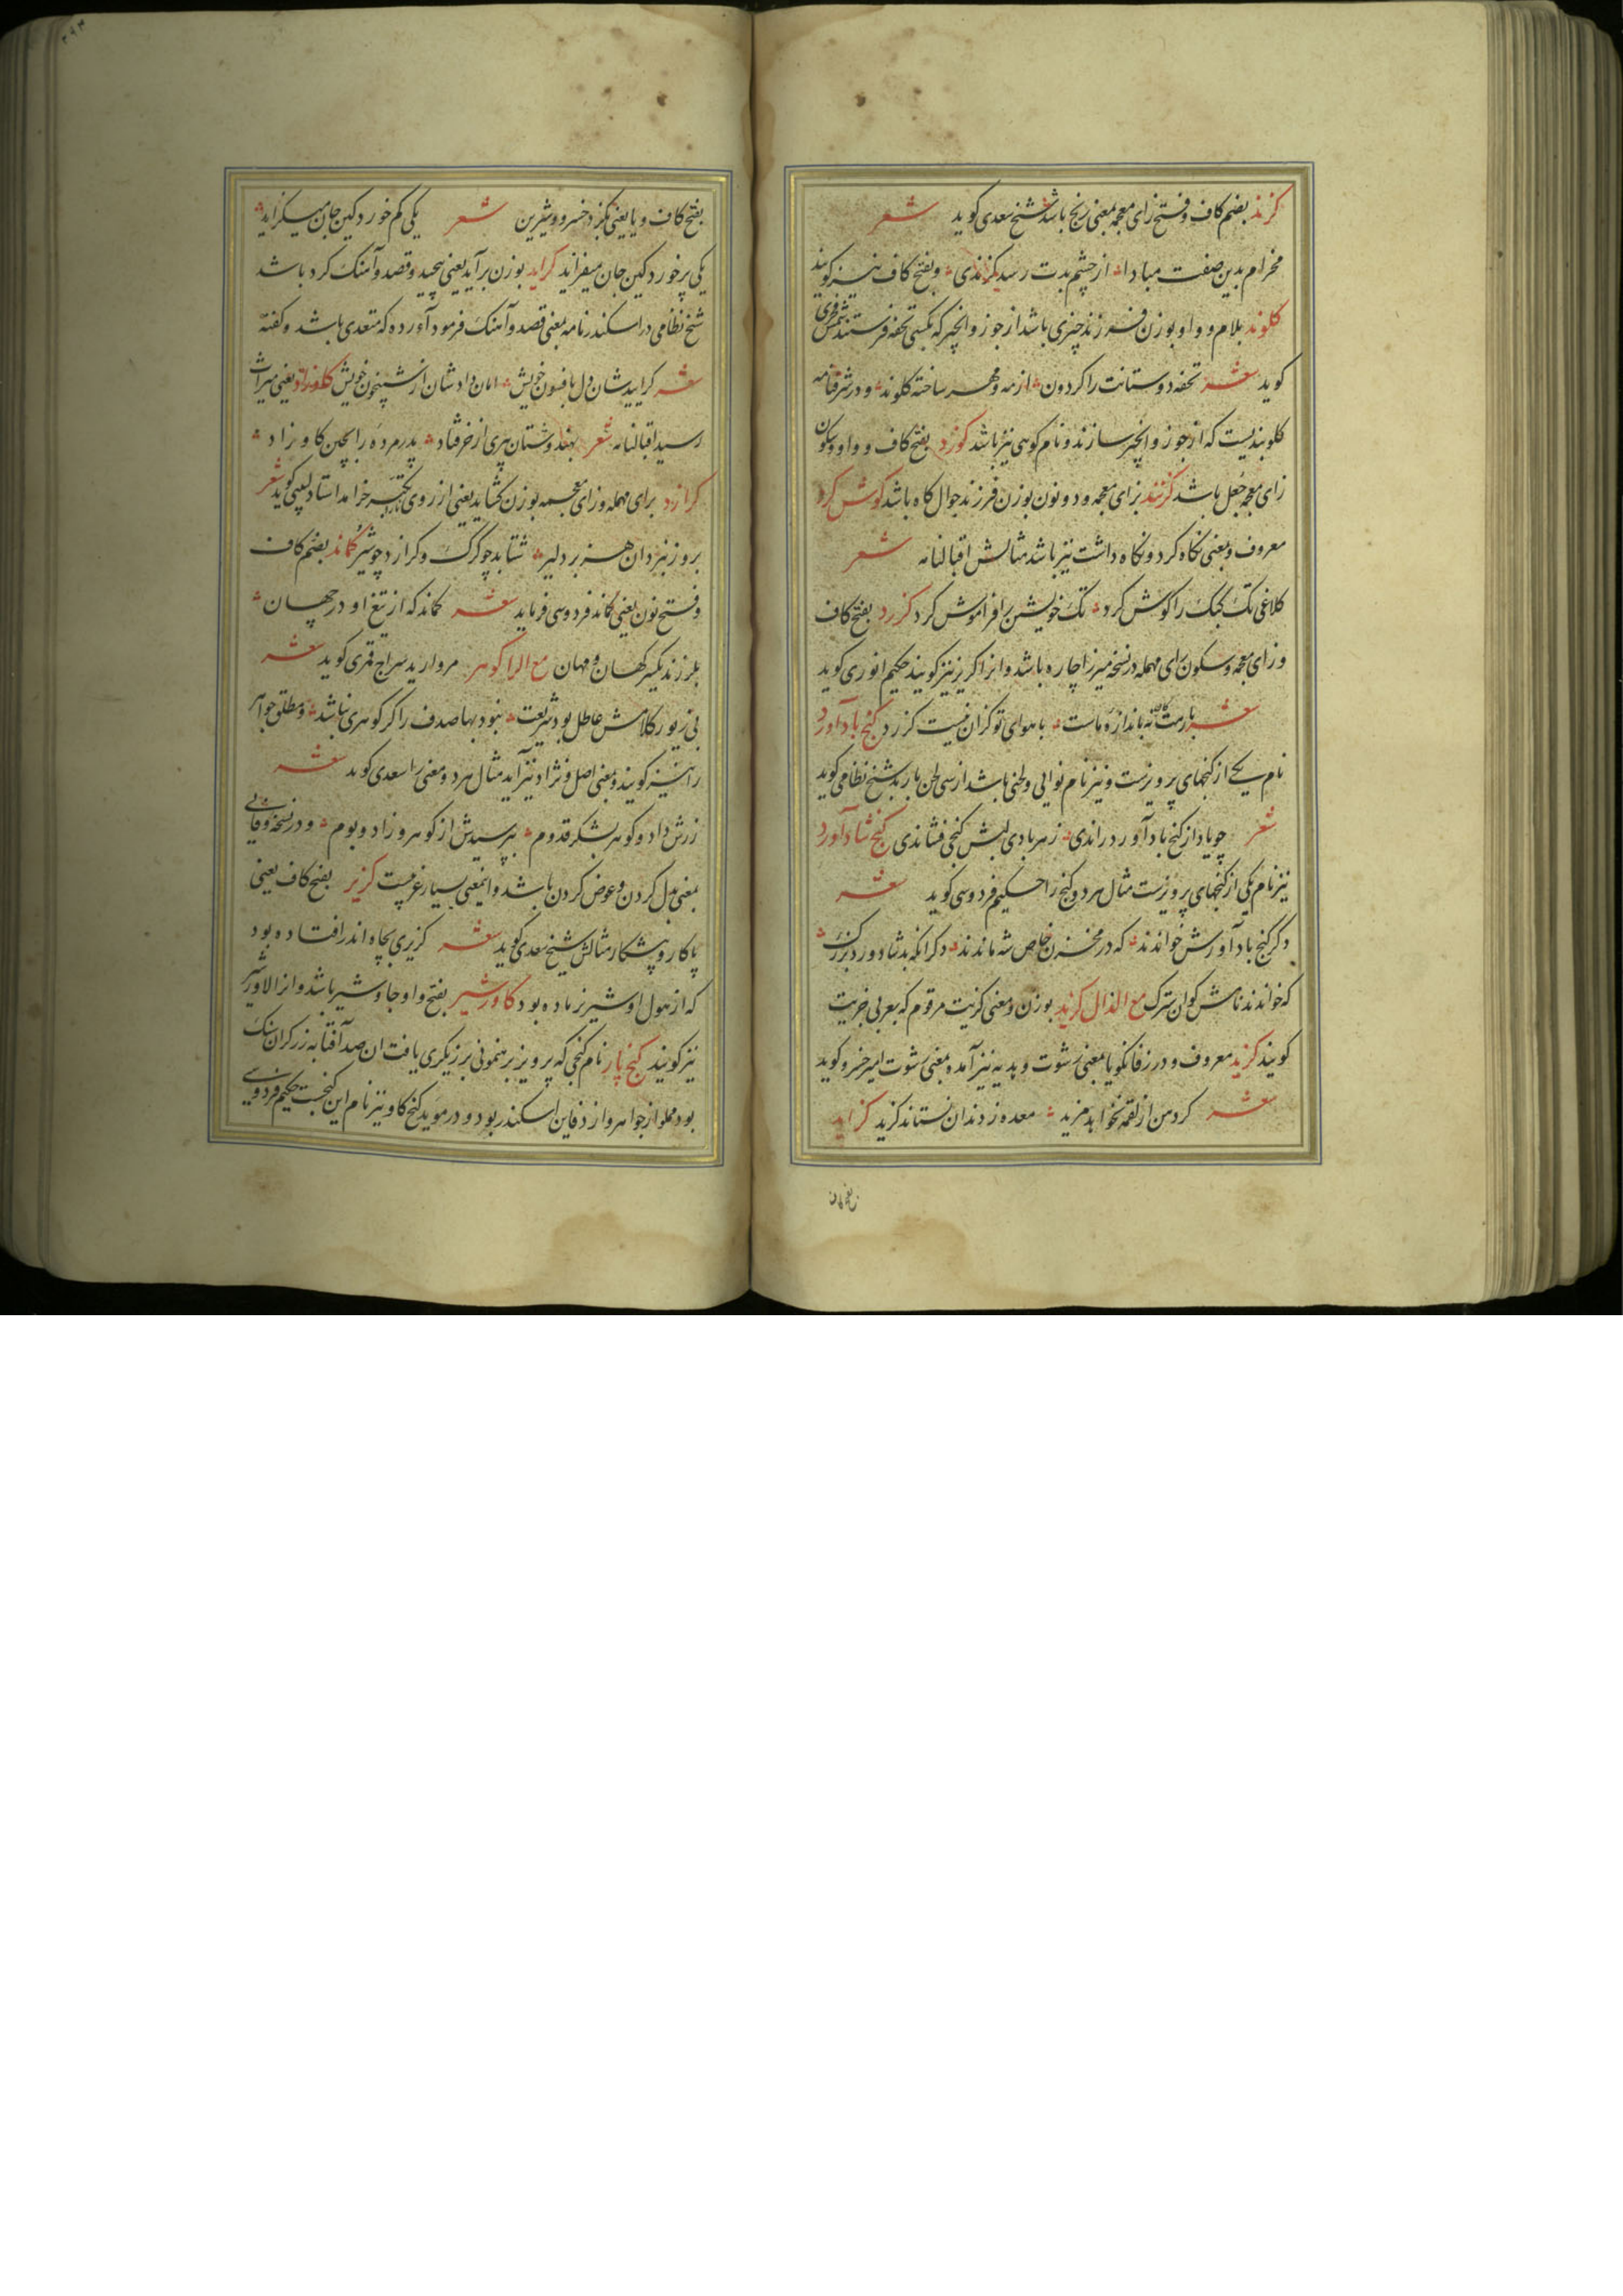 کزند بضم کاف و فتح زای معجمه بمعنی رنج باشد شیخ سعدی کوید شعر
مخرام بدین صفت مبادا از چشم بدت رسد کزندی و بفتح کاف نیز کویند
کلوند بلام و واو بوزن فرزند چیزی باشد از جوز و انجیر که بکسی تحفه فرستند شمس فخری
کوید شعر تحفه دوستانت را کردون از مه و مهر ساخته کلوند و در شرفنامه
کلوبندیست که از جوز و انجیر سازند و نام کوهی نیز باشد کوزد بفتح کاف و واو و سکون
زای معجمه جعل باشد کزنند بزای معجمه و دو نون بوزن فرزند جوال کاه باشد کوش کرد
معروف و بمعنی نکاه کرد و نکاه داشت نیز باشد مثالش اقبالنامه شعر
کلاغی تک کبک را کوش کرد تک خویشتن را فراموش کرد کزرد بفتح کاف
و زای معجمه و سکون رای مهمله در نسخه میرزا چاره باشد و انرا کزیر نیز کویند حکیم انوری کوید
شعر بارمنت نه باندازه ماست با هوای تو کزان نیست کزرد کنج بادآورد
نام یکی از کنجهای پرویزست و نیز نام نوایی و لحنی باشد از سی لحن باربد شیخ نظامی کوید
شعر چو یاد از کنج بادآورد راندی ز هر بادی لبش کنجی فشاندی کنج شادآورد
نیز نام یکی از کنجهای پرویزست مثال هر دو کنج را حکیم فردوسی کوید شعر
دکر کنج بادآورش خواندند که در مخزن خاص شه ماندند دکر آنکه بد شادورد بزرک
که خواندند نامش کوان سترک مع الذال کزید بوزن و معنی کزیت مرقوم که بعربی جزیت
کویند کزید معروف و در زفانکویا بمعنی رشوت و هدیه نیز آمده بمعنی رشوت امیر خسرو کوید
شعر کردهن از لقمه نخواهد مزید معده ز دندان نستاند کزید کزاید
بفتح کاف و یا یعنی بکزد خسرو و شیرین شعر یکی کم خورد کین جان میکزاید
یکی پر خورد کین جان میفزاید کراید بوزن برآید یعنی پیچید و قصد و آهنک کرد باشد
شیخ نظامی در اسکندرنامه بمعنی قصد و آهنک فرمود آورده که متعدی باشد و کفته
شعر کراییدشان دل بافسون خویش امان دادشان از شبیخون خویش کاوزاد یعنی میراث
رسید اقبالنامه شعر بهندوستان پیری از خر فتاد پدر مرده را بچین کاو زاد
کرازد برای مهمله و زای معجمه بوزن کشاید یعنی از روی تکبر خرامد استاد لبیبی کوید شعر
بروز نبرد آن هزبر دلیر شتابد چو کرک و کرازد چو شیر کماند بضم کاف
و فتح نون یعنی کماند فردوسی فرماید شعر کماند که از تیغ او در جهان
بلرزند یکسر کهان و مهان مع الرا کوهر مروارید سراج قمری کوید شعر
بی زیور کلامش عاطل بود شریعت نبود بها صدف را کر کوهری نباشد و مطلق جواهر
را نیز کویند و بمعنی اصل و نژاد نیز آید مثال هر دو معنی را سعدی کوید شعر
زرش داد و کوهر بشکر قدوم بپرسیدش از کوهر و زاد و بوم و در نسخه وفایی
بمعنی بدل کردن و عوض کردن باشد و اینمعنی بسیار غریبست کزیر بفتح کاف یعنی
پاکار و پیشکار مثالش شیخ سعدی کوید شعر کزیری بچاه اندر افتاده بود
که از هول او شیر نر ماده بود کاوشیر بفتح واو جاوشیر باشد و انرا کاورشیر
نیز کویند کنج پار نام کنجی که پرویز برهنمونی برزیکری یافت ان صد آفتابه زر کران سنک
بود مملو از جواهر و از دفاین اسکندر بود و در موید کنج کاو نیز نام این کنجست حکیم فردوسی